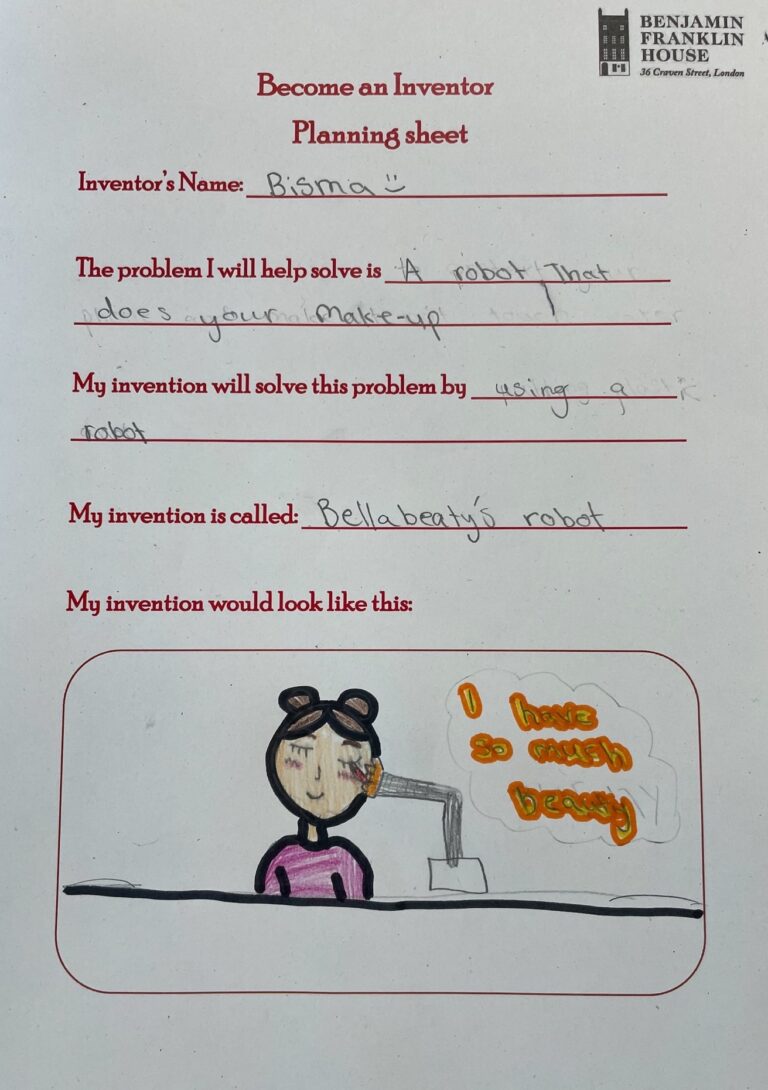 BENJAMIN
FRANKLIN
HOUSE
36 Craven Street, London
Become an Inventor
Planning sheet
Inventor's Name: Bisma
The problem I will help solve is A robot That
does your make-up
My invention will solve this problem by using a
robot
My invention is called: Bellabeaty's robot
My invention would look like this:
I have
so much
beauty